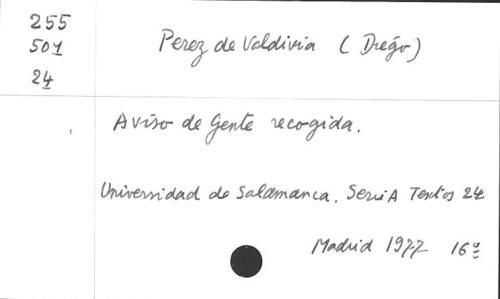 255
501
24
Perez de Valdivia (Diego)
Aviso de Gente recogida.
Universidad de Salamanca. Seria Textos 24
Madrid 1977 16º